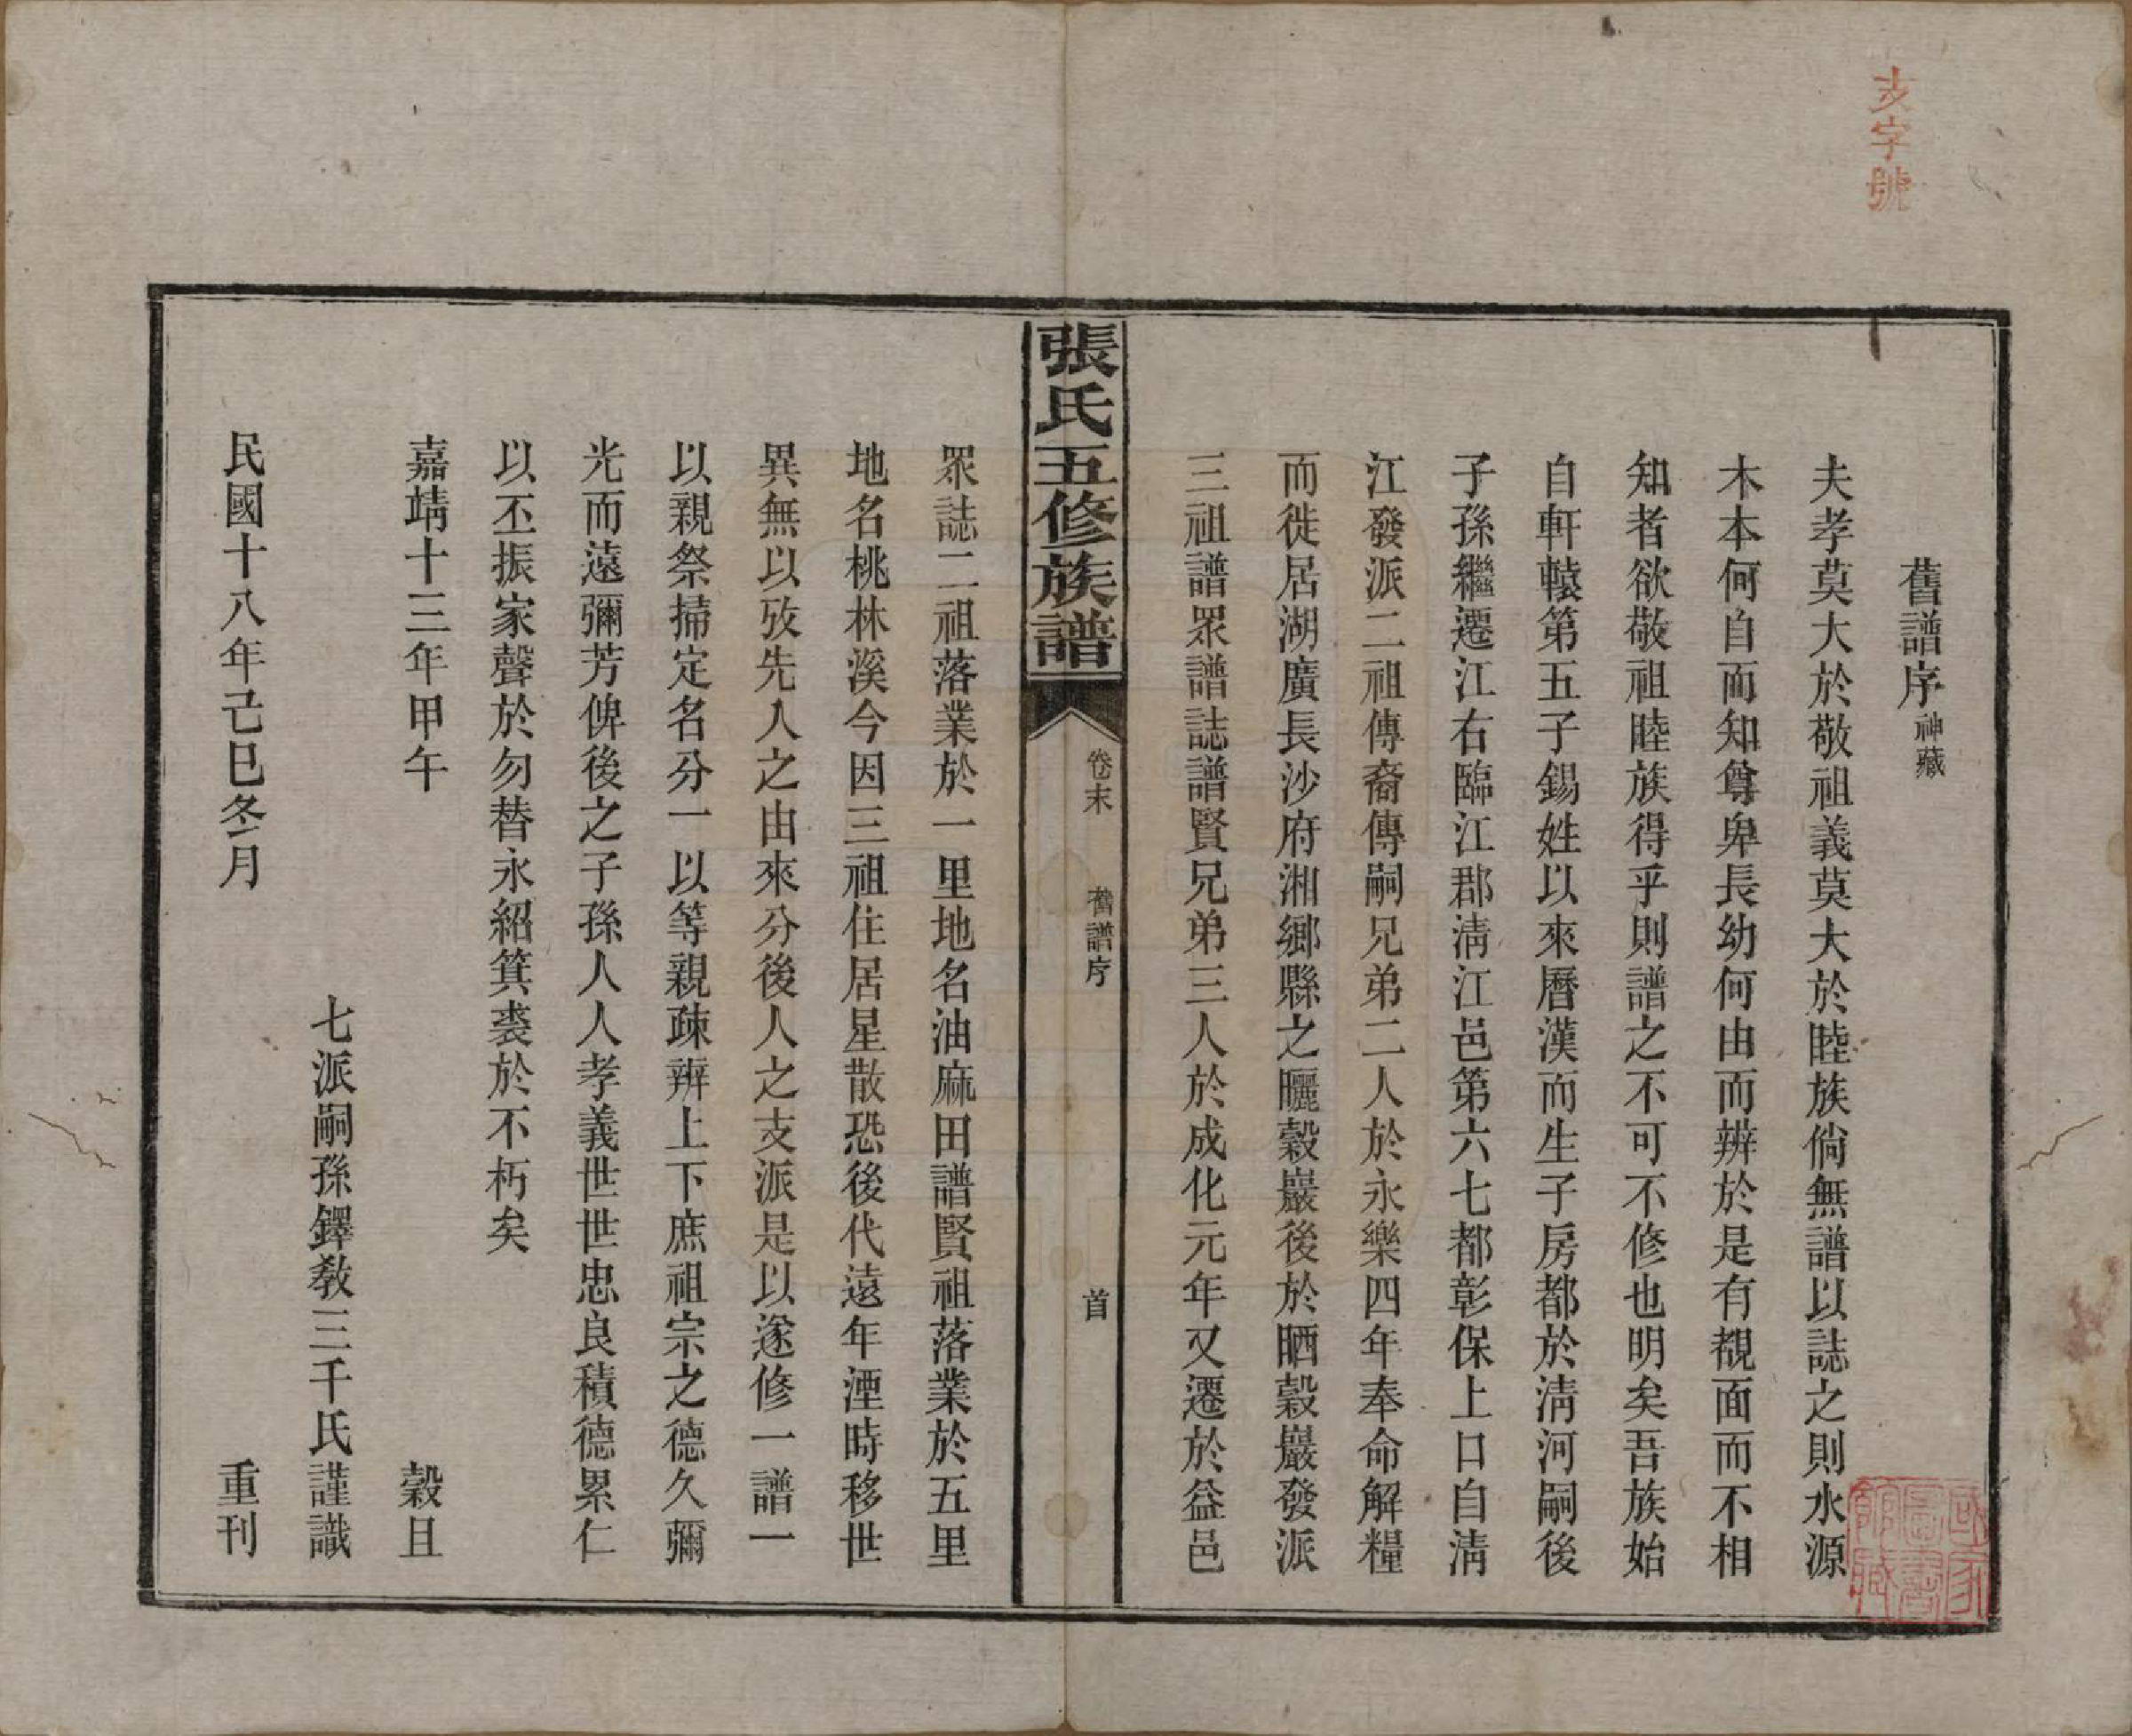 支字號
舊譜序神藏
夫孝莫大於敬祖義莫大於睦族倘無譜以誌之則水源
木本何自而知尊卑長幼何由而辨於是有覩面而不相
知者欲敬祖睦族得乎則譜之不可不修也明矣吾族始
自軒轅第五子錫姓以來曆漢而生子房都於淸河嗣後
子孫繼遷江右臨江郡淸江邑第六七都彰保上口自淸
江發派二祖傳裔傳嗣兄弟二人於永樂四年奉命解糧
而徙居湖廣長沙府湘鄉縣之曬穀巖後於晒穀巖發派
三祖譜眾譜誌譜賢兄弟三人於成化元年又遷於益邑
張氏五修族譜
卷末
舊譜序
首
眾誌二祖落業於一里地名油麻田譜賢祖落業於五里
地名桃林溪今因三祖住居星散恐後代遠年湮時移世
異無以攷先人之由來分後人之支派是以遂修一譜一
以親祭掃定名分一以等親疎辨上下庶祖宗之德久彌
光而遠彌芳俾後之子孫人人孝義世世忠良積德累仁
以丕振家聲於勿替永紹箕裘於不朽矣
嘉靖十三年甲午 穀旦
七派嗣孫鐸敎三千氏謹識
民國十八年己巳冬月 重刊
國家圖書館藏